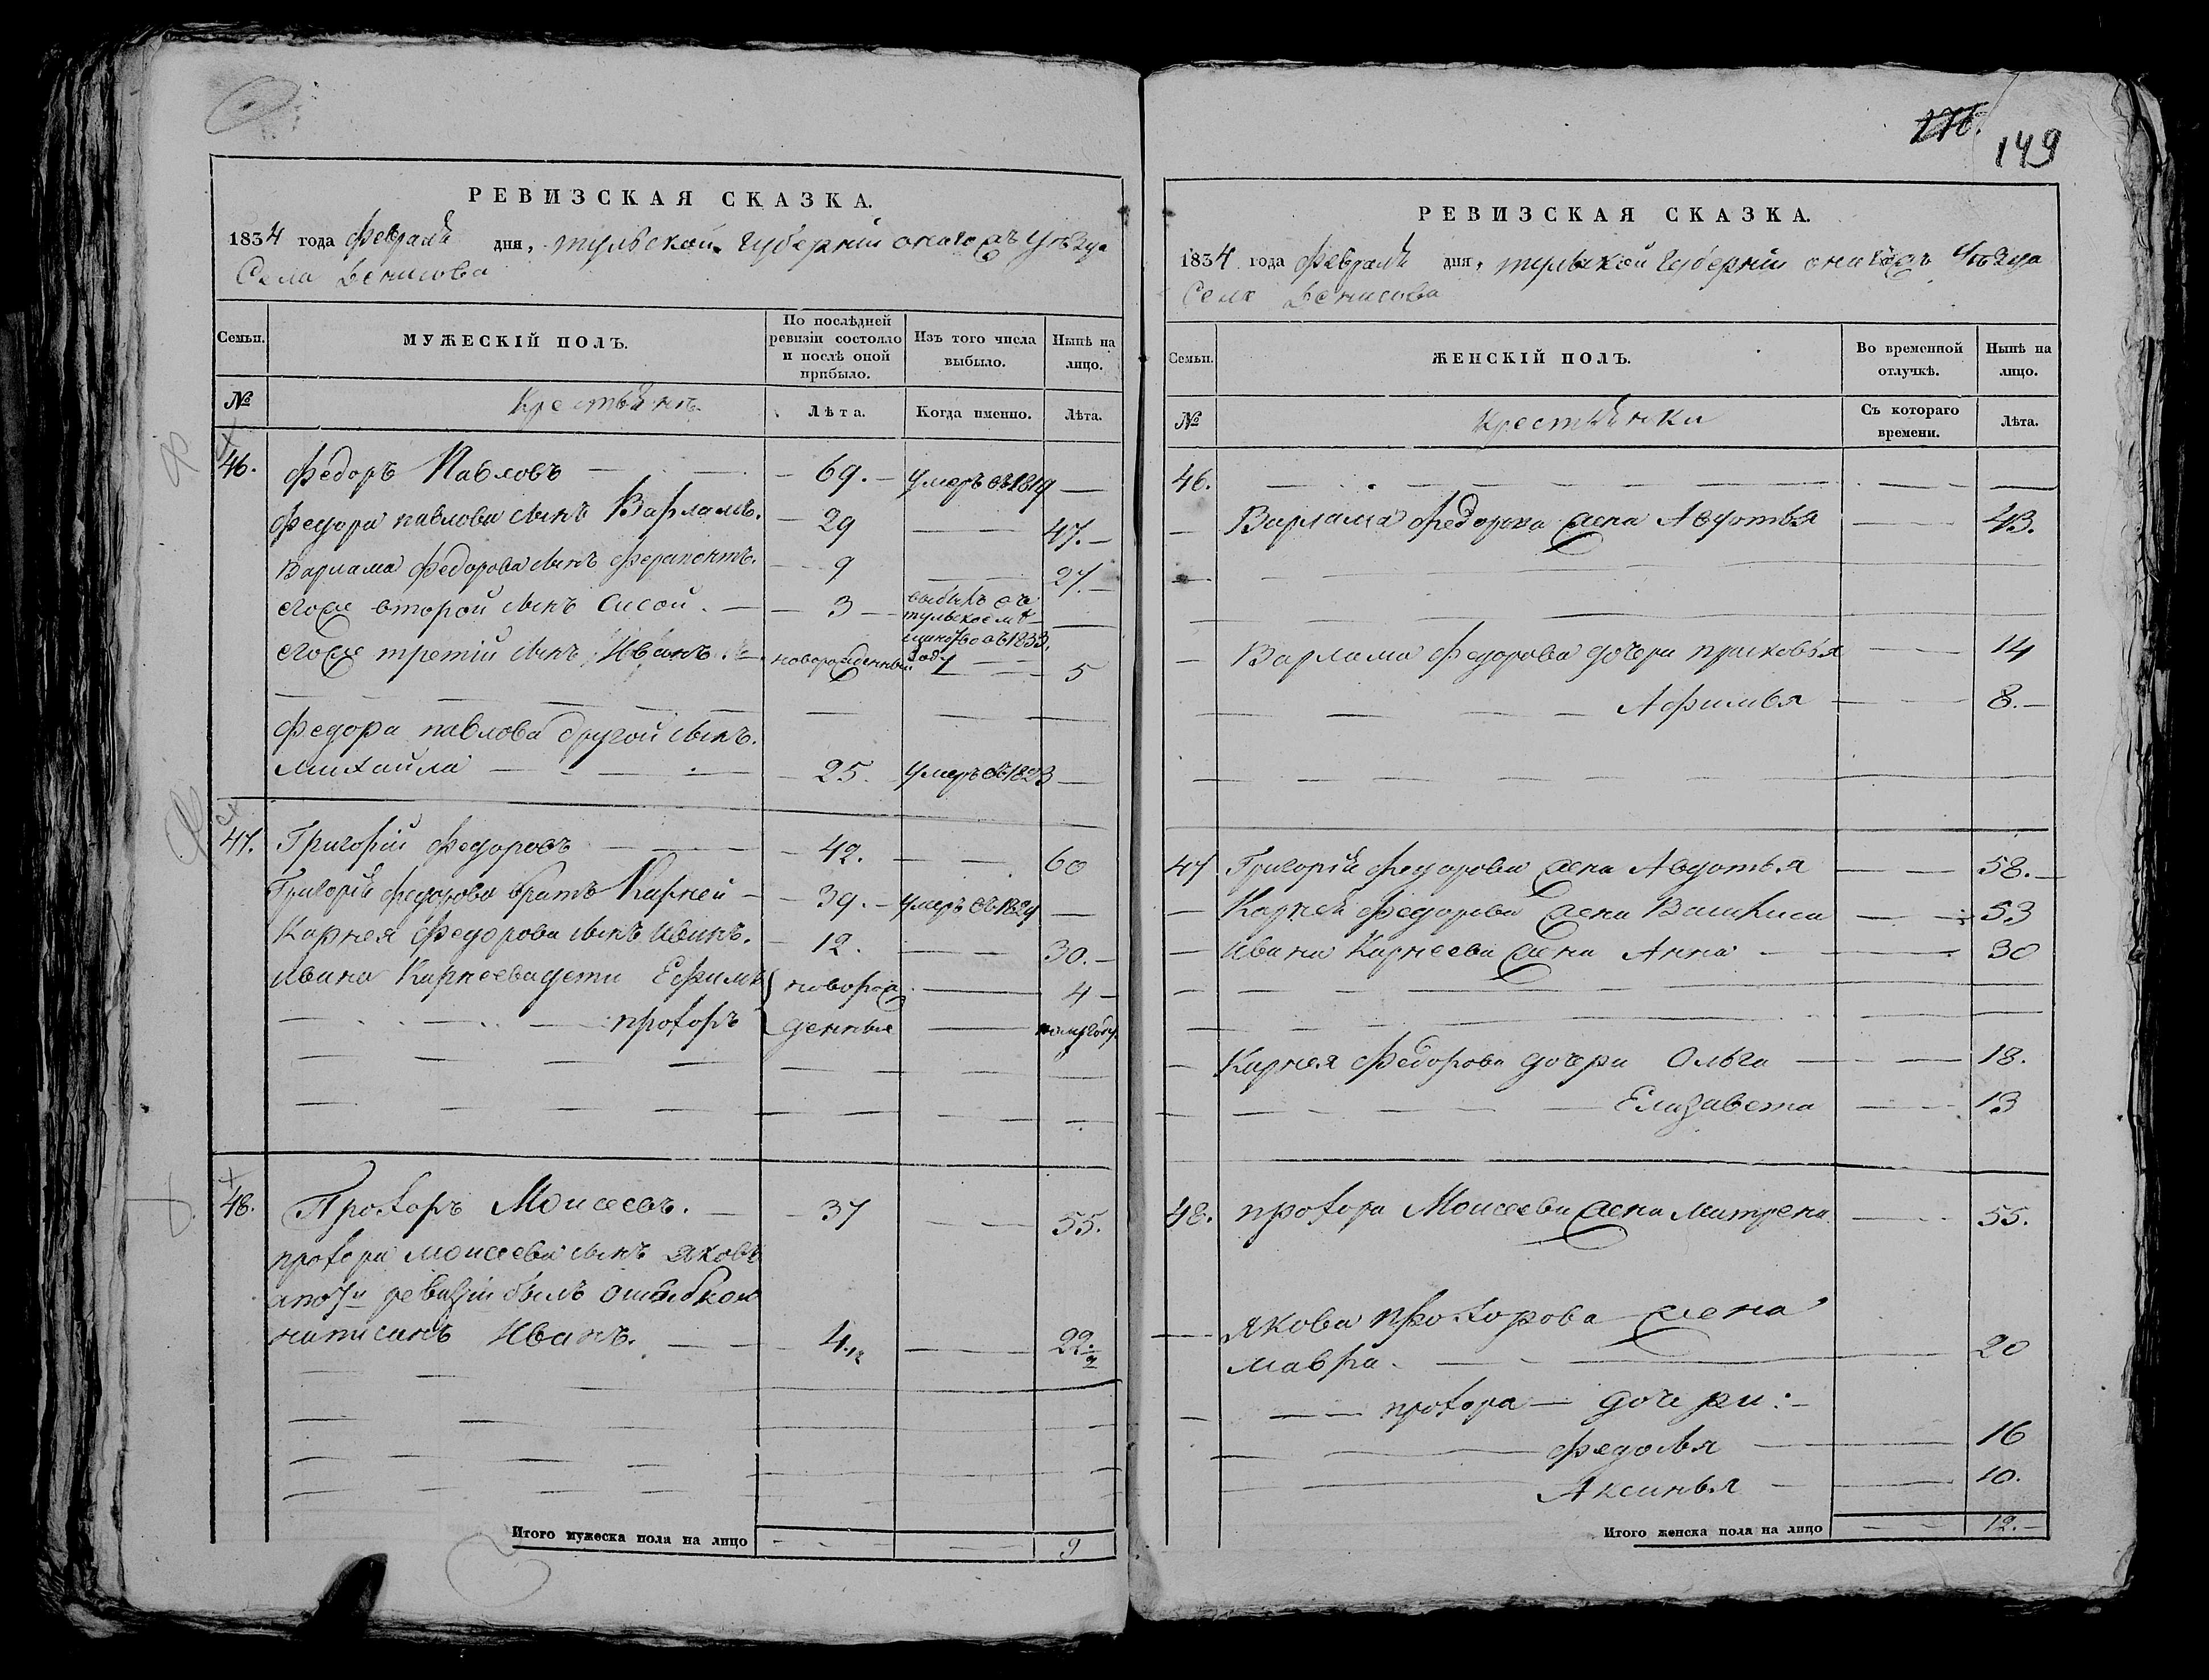 РЕВИЗСКАЯ СКАЗКА.
1834 года февраля дня, тульской губернии онагожъ уѣзда
Села Денисова
Семьи. МУЖЕСКІЙ ПОЛЪ. По послѣдней ревизіи состояло и послѣ оной прибыло. Изъ того числа выбыло. Нынѣ на лицо.
№ Крестьянъ. Лѣта. Когда именно. Лѣта.
46. Федоръ Павловъ — 69. — умеръ въ 1819 —
Федора павлова сынъ Варламъ. — 29 — 47. —
Варлама Федорова сынъ Ферапонтъ. — 9 — 27. —
егоже второй сынъ Сисой. — 3 — выбылъ въ
тульское мѣ-
щанство въ 1833.
году
егоже третій сынъ Иванъ. — новорожденный — 5
Федора павлова другой сынъ.
михайла — 25. умеръ въ 1823 —
47. Григорій Федоровъ — 42. — 60
Григорія Федорова братъ Карней — 39. — умеръ въ 1829 —
Карнея Федорова сынъ Иванъ. — 12. — 30. —
Ивана Карнеева дети Ефимъ } новорож — 4 —
— прохоръ } денные — полугоду
48. Прохоръ Моисеевъ. — 37 — 55.
прохора моисеева сынъ яковъ
а по 7й ревизіи былъ ошибкою
написанъ Иванъ. — 4.½ — 22.½
Итого мужеска пола на лицо — 9
276. 149
РЕВИЗСКАЯ СКАЗКА.
1834 года февраля дня, тульской губерніи онагожъ уѣзда
Села Денисова
Семьи. ЖЕНСКІЙ ПОЛЪ. Во временной отлучкѣ. Нынѣ на лицо.
№ крестьянки Съ котораго времени. Лѣта.
46.
— Варлама Федорова жена Авдотья — 43.
— Варлама федорова дочери прасковья — 14
Афимья — 8. —
47 Григорія федорова жена Авдотья — 58. —
— Карнея федорова жена Василиса — 53
— Ивана Карнеева жена Анна — 30
— Карнея Федорова дочери Ольга — 18.
Елизавета — 13
48. прохора Моисеева жена матрена — 55.
— Якова прохорова жена
мавра. — 20
— прохора — дочери: —
федосья — 16
Аксинья — 10.
Итого женска пола на лицо — 12. —